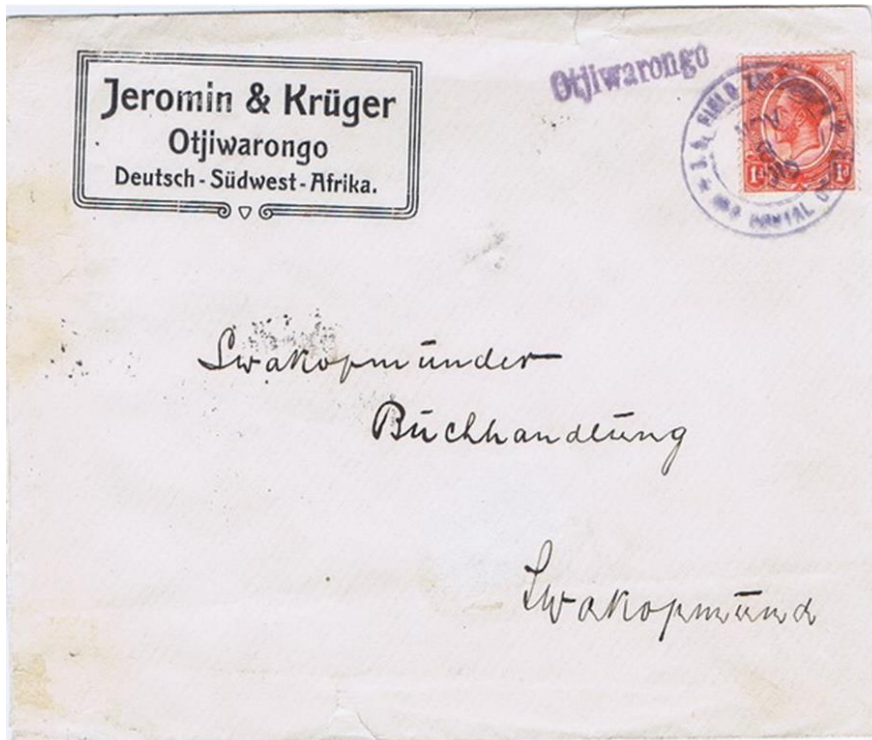 Jeromin & Krüger
Otjiwarongo
Deutsch-Südwest-Afrika.
Otjiwarongo
1d 1d
FIELD
POSTAL
Swakopmünder
Buchhandlung
Swakopmund